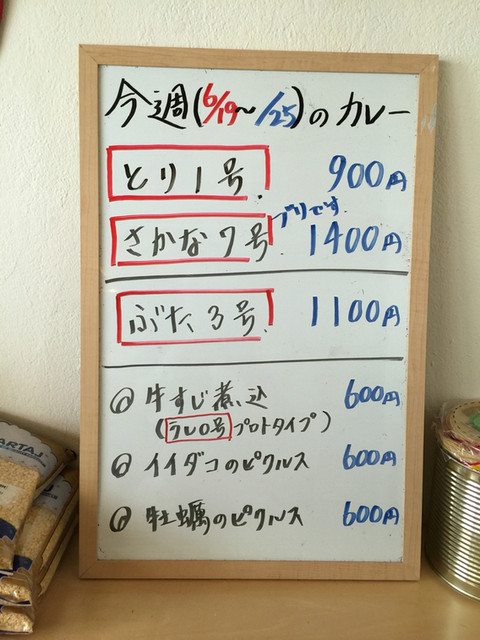 今週(6/19~/25)のカレー
とり1号. 900円
ブリです.
さかな7号. 1400円
ぶた3号. 1100円
牛すじ煮込 600円
(プロトタイプ)
イイダコのピクルス 600円
牡蠣のピクルス 600円
ARTAJ